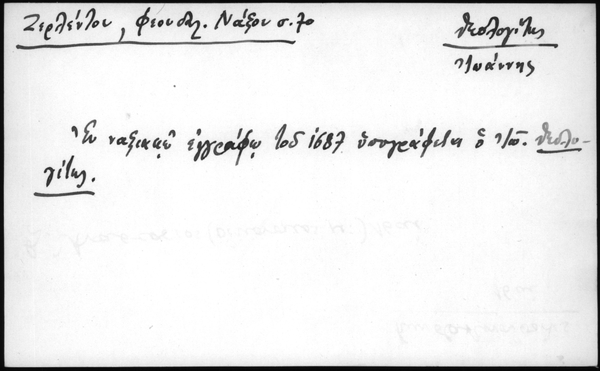 Ζερλέντου, Φεουδαλ. Νάξου σ. 70
Θεολογίτης
Ἰωάννης
Ἐν ναξιακῷ ἐγγράφῳ τοῦ 1687 ὑπογράφεται ὁ Ἰω. Θεολο-
γίτης.